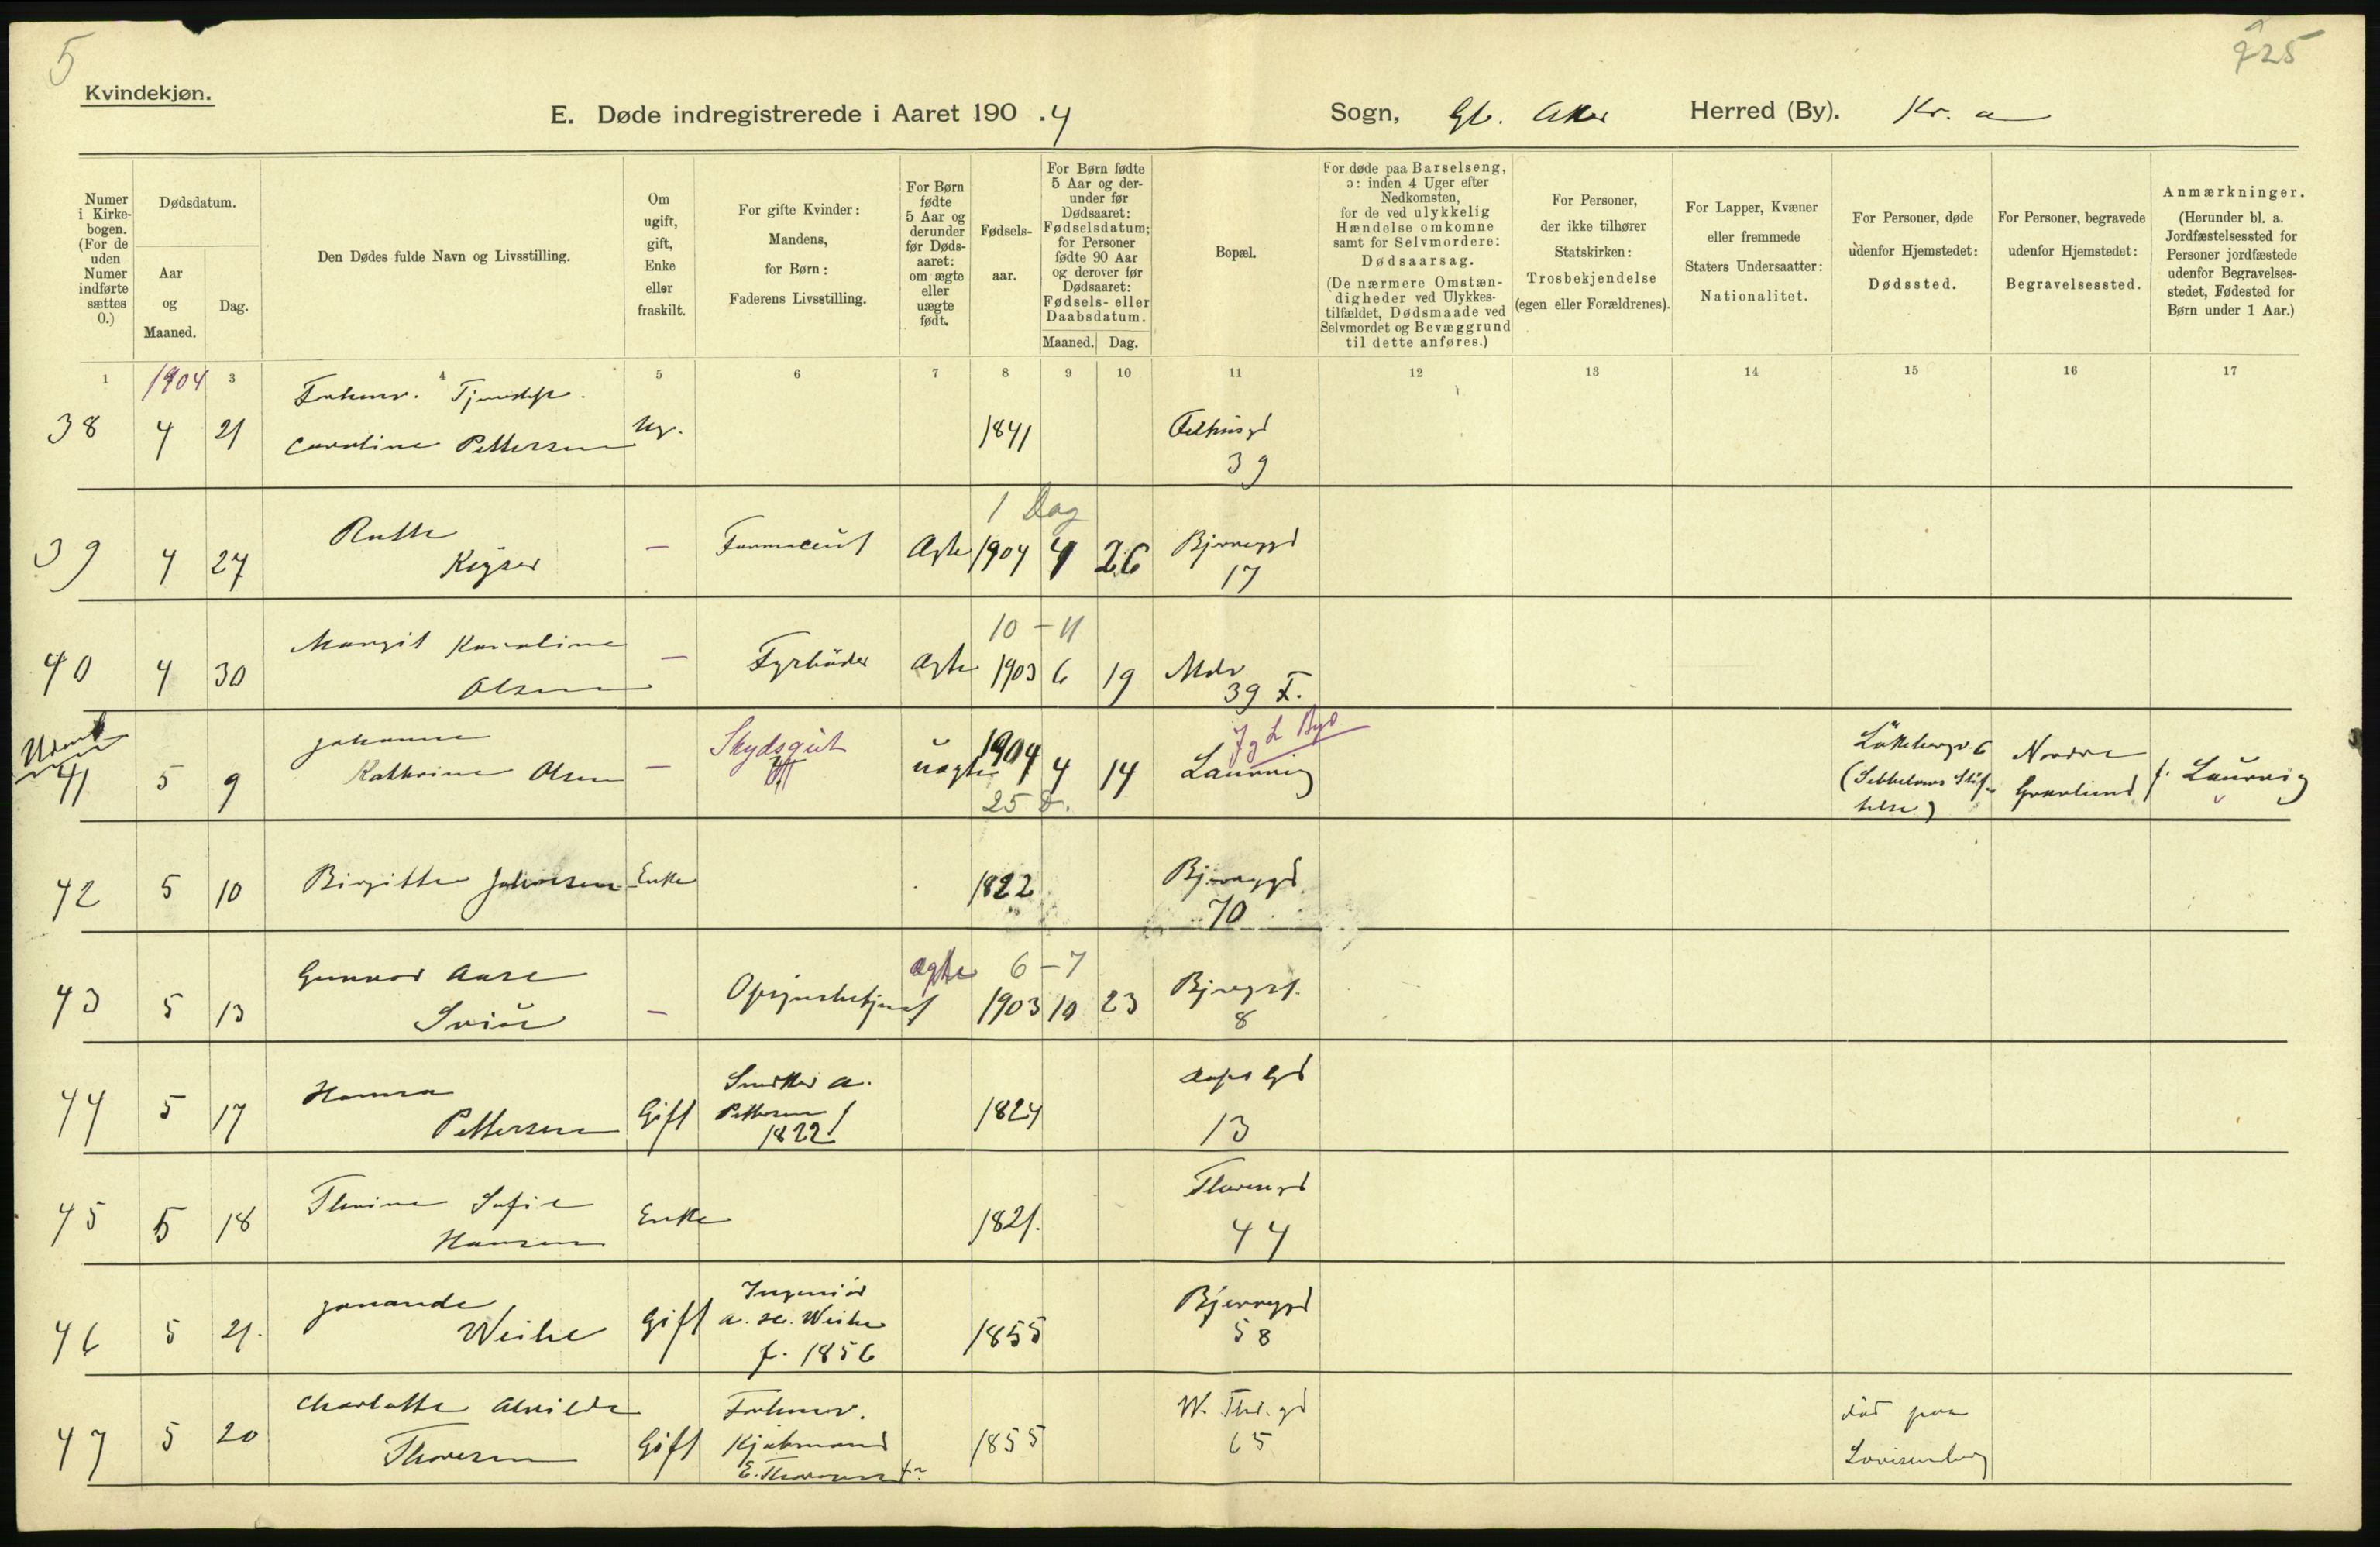 5
725
Kvindekjøn.
E. Døde indregistrerede i Aaret 190.4
Sogn, Gl. Aker
Herred (By). Kr. a
Numer i Kirkebogen. (For de uden Numer indførte sættes 0.)
Dødsdatum.
Aar og Maaned.
Dag.
Den Dødes fulde Navn og Livsstilling.
Om ugift, gift, Enke eller fraskilt.
For gifte Kvinder: Mandens, for Børn: Faderens Livsstilling.
For Børn fødte 5 Aar og derunder før Dødsaaret: om ægte eller uægte født.
Fødselsaar.
For Børn fødte 5 Aar og derunder før Dødsaaret: Fødselsdatum; for Personer fødte 90 Aar og derover før Dødsaaret: Fødsels- eller Daabsdatum.
Maaned. Dag.
Bopæl.
For døde paa Barselseng, ɔ: inden 4 Uger efter Nedkomsten, for de ved ulykkelig Hændelse omkomne samt for Selvmordere: Dødsaarsag.
(De nærmere Omstændigheder ved Ulykkestilfældet, Dødsmaade ved Selvmordet og Bevæggrund til dette anføres.)
For Personer, der ikke tilhører Statskirken: Trosbekjendelse (egen eller Forældrenes).
For Lapper, Kvæner eller fremmede Staters Undersaatter: Nationalitet.
For Personer, døde udenfor Hjemstedet: Dødssted.
For Personer, begravede udenfor Hjemstedet: Begravelsessted.
Anmærkninger. (Herunder bl. a. Jordfæstelsessted for Personer jordfæstede udenfor Begravelsesstedet, Fødested for Børn under 1 Aar.)
1 3 4 5 6 7 8 9 10 11 12 13 14 15 16 17
1904
Forhenv.
38 4 21 Caroline Pettersen Ug. 1841
39
1 Dag
39 4 27 Ruth Keyser — Farmaceut Ægte 1904 4 26
17
10 - 11
40 4 30 Margit Karoline Olsen — Fyrbøder Ægte 1903 6 19
39 I.
41 5 9 Johanne Kathrine Olsen — Skydsgut uægte 1904 4 14 Laurvig
25 D.
Nordre Gravlund
f. Laurvig
42 5 10 Birgitte Johnsen Enke 1822
70
6 - 7
43 5 13 Gunvor Aase — ægte 1903 10 23
8
44 5 17 Hanna Pettersen Gift A. Pettersen 1822 1824
13
45 5 18 Thrine Sofie Hansen Enke 1821.
44
46 5 21. Weihe Gift Ingeniør Weihe f. 1856 1855
58
47 5 20 Charlotte Alvilde Thoresen Gift Forhenv. Kjøbmand E. Thoresen 1855
65
død paa Lovisenberg